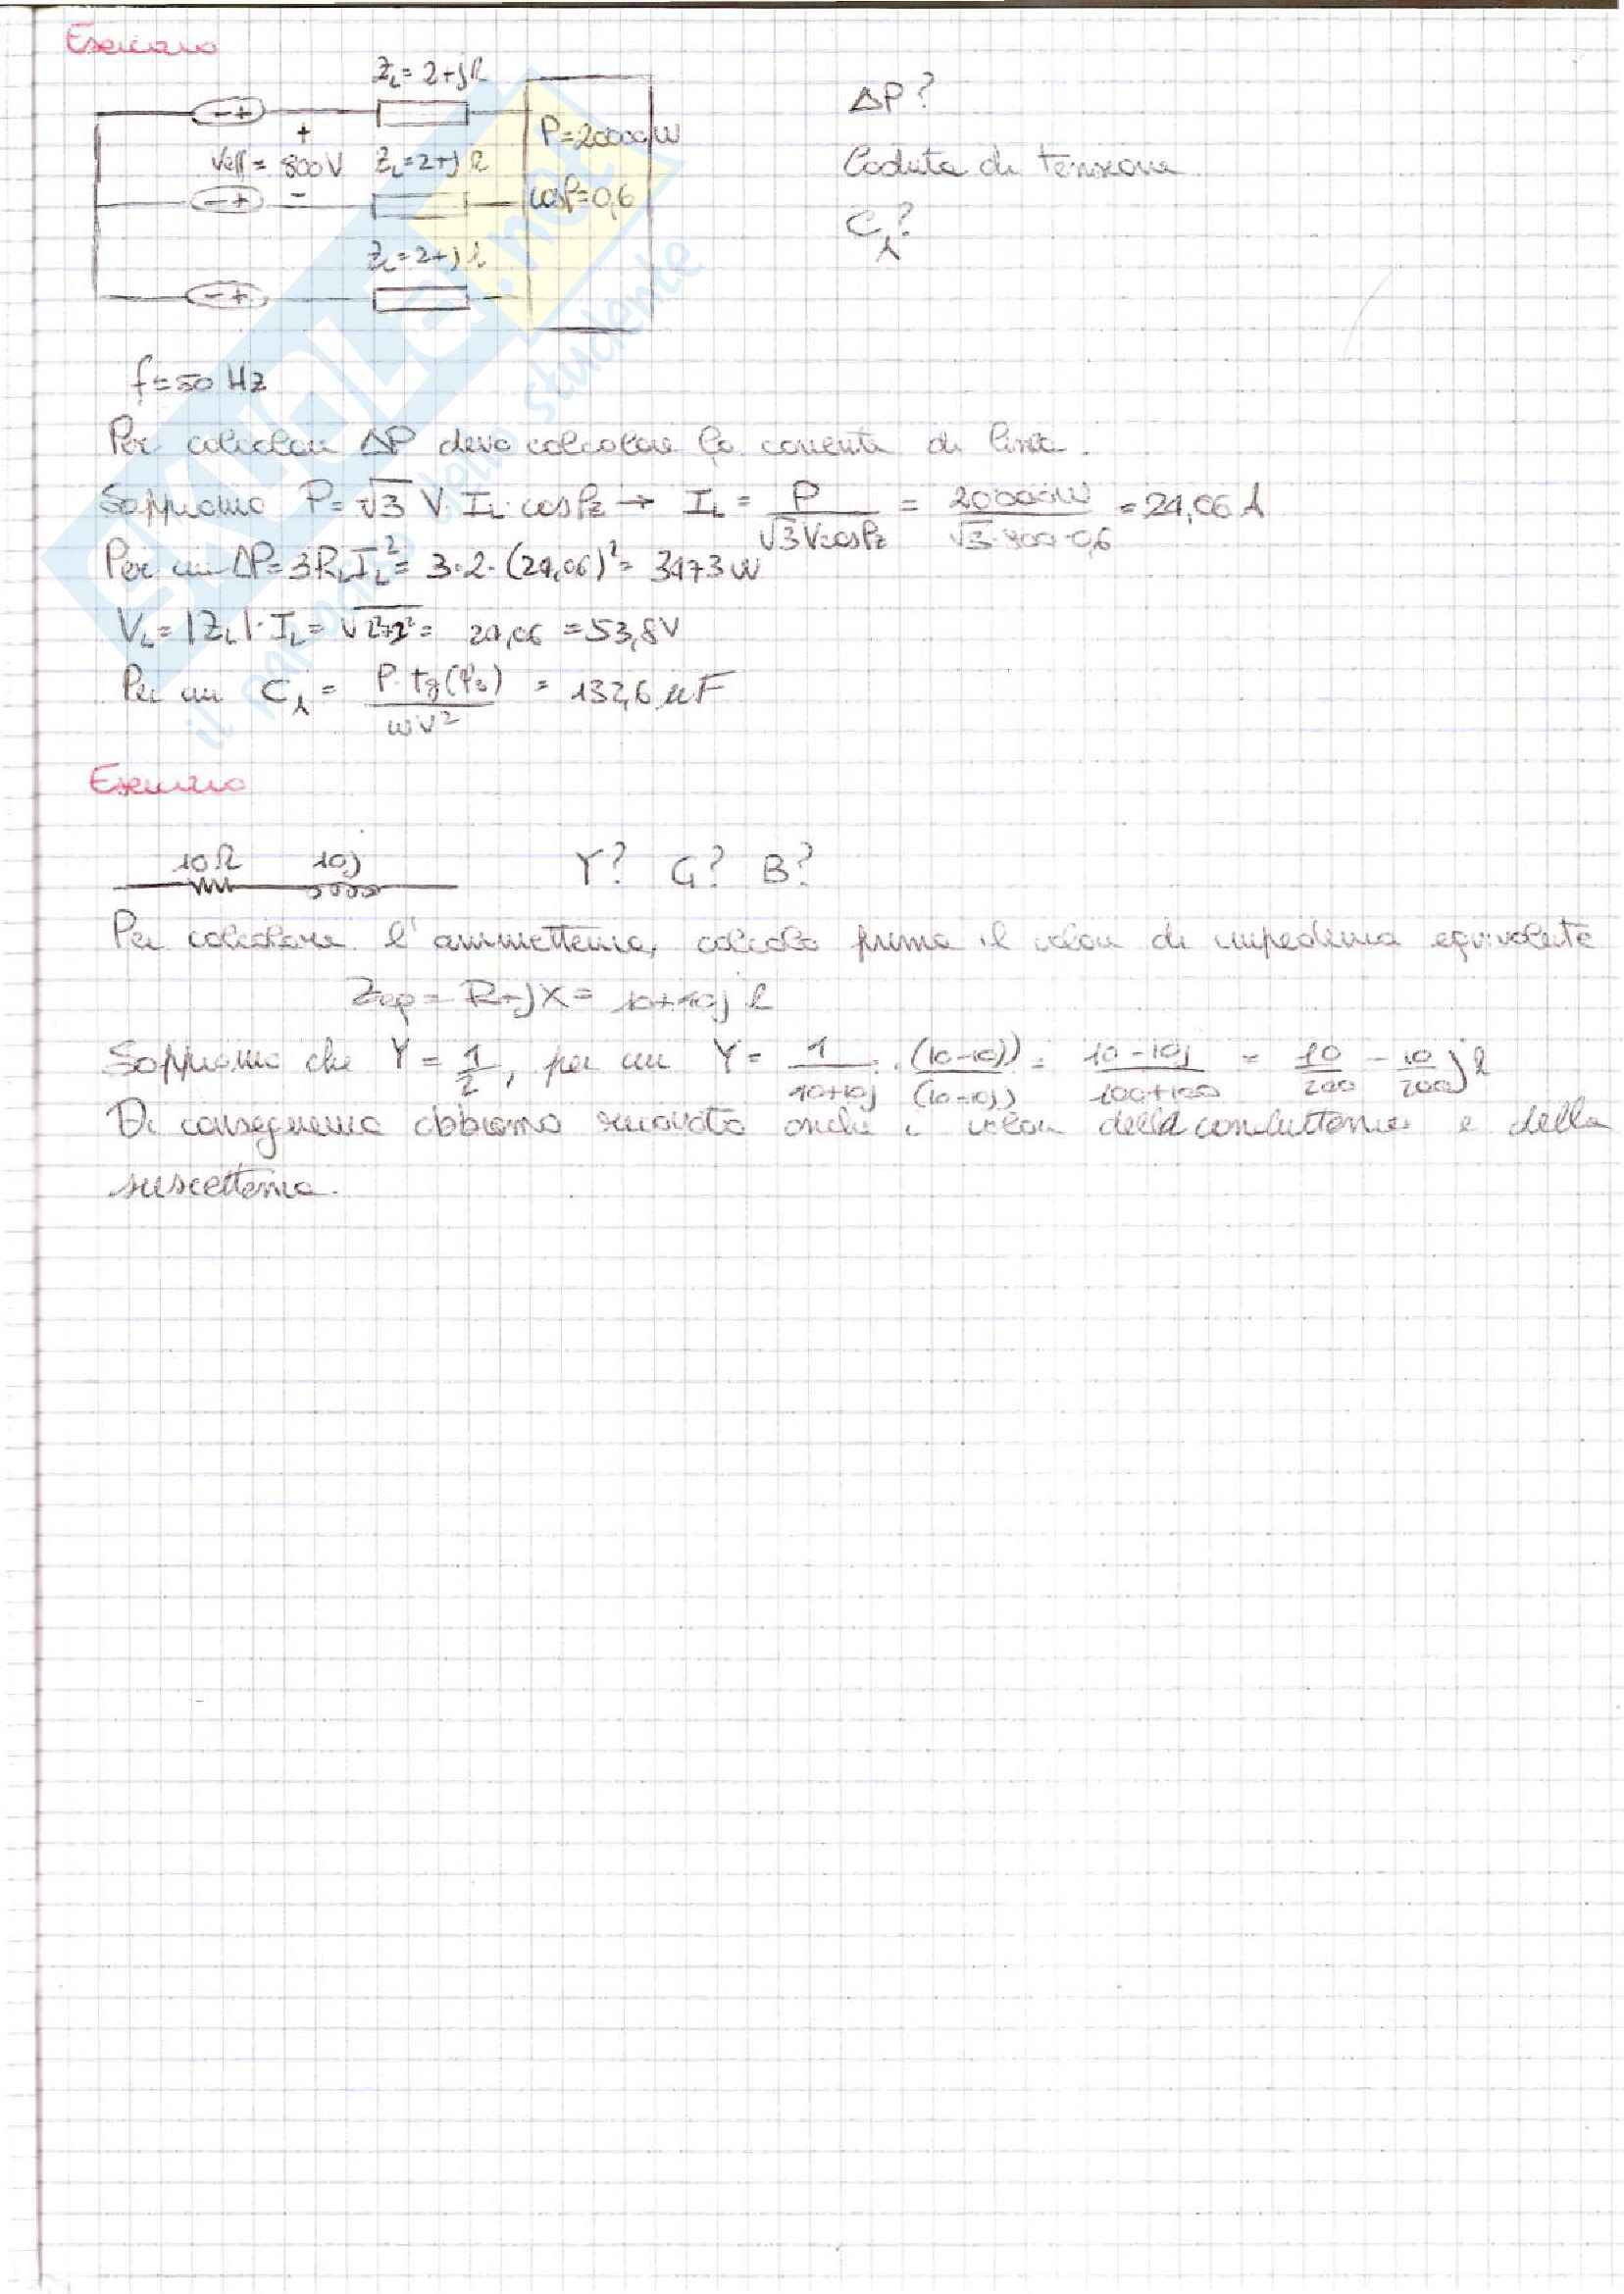 Esercizio
Z_L = 2+j Ω
ΔP?
P=20000W
Veff = 800V
Z_L = 2+j Ω
Caduta di tensione
cosφ=0,6
C_λ?
Z_L = 2+j Ω
f=50 Hz
Per calcolare ΔP devo calcolare la corrente di linea.
Sappiamo P= √3 V · I_L · cosφz → I_L = P / √3 V cosφz = 20000W / √3 · 800 · 0,6 = 24,06 A
Per cui ΔP = 3R_L I_L² = 3·2·(24,06)² = 3473 W
V_L = |Z_L| · I_L = √2²+1² = 24,06 = 53,8V
Per cui C_λ = P · tg(φz) / ωV² = 132,6 μF
Esercizio
10Ω 10j Y? G? B?
Per calcolare l'ammettenza, calcolo prima il valore di impedenza equivalente
Zeq = R+jX = 10+10j Ω
Sappiamo che Y = 1/Z, per cui Y = 1/10+10j · (10-10j)/(10-10j) = 10-10j/100+100 = 10/200 - 10/200 j Ω
Di conseguenza abbiamo ricavato anche i valori della conduttanza e della
suscettanza.
SKUOLA.net
il paradiso dello studente